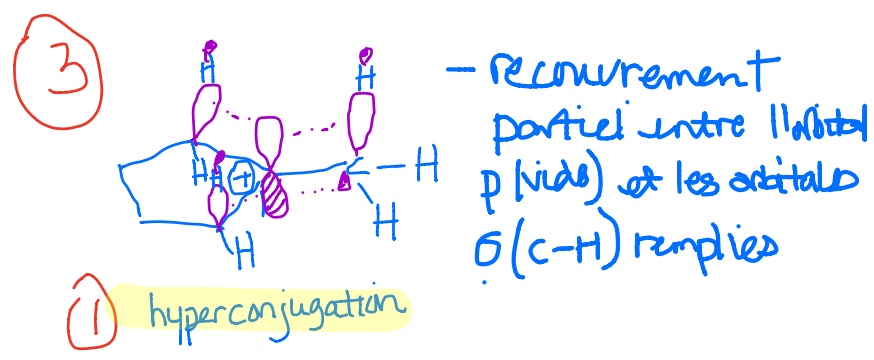 3
H H
- recouvrement
partiel entre l'orbital
H H + - H
p (vide) et les orbitales
H H
σ (C-H) remplies
1 hyperconjugation